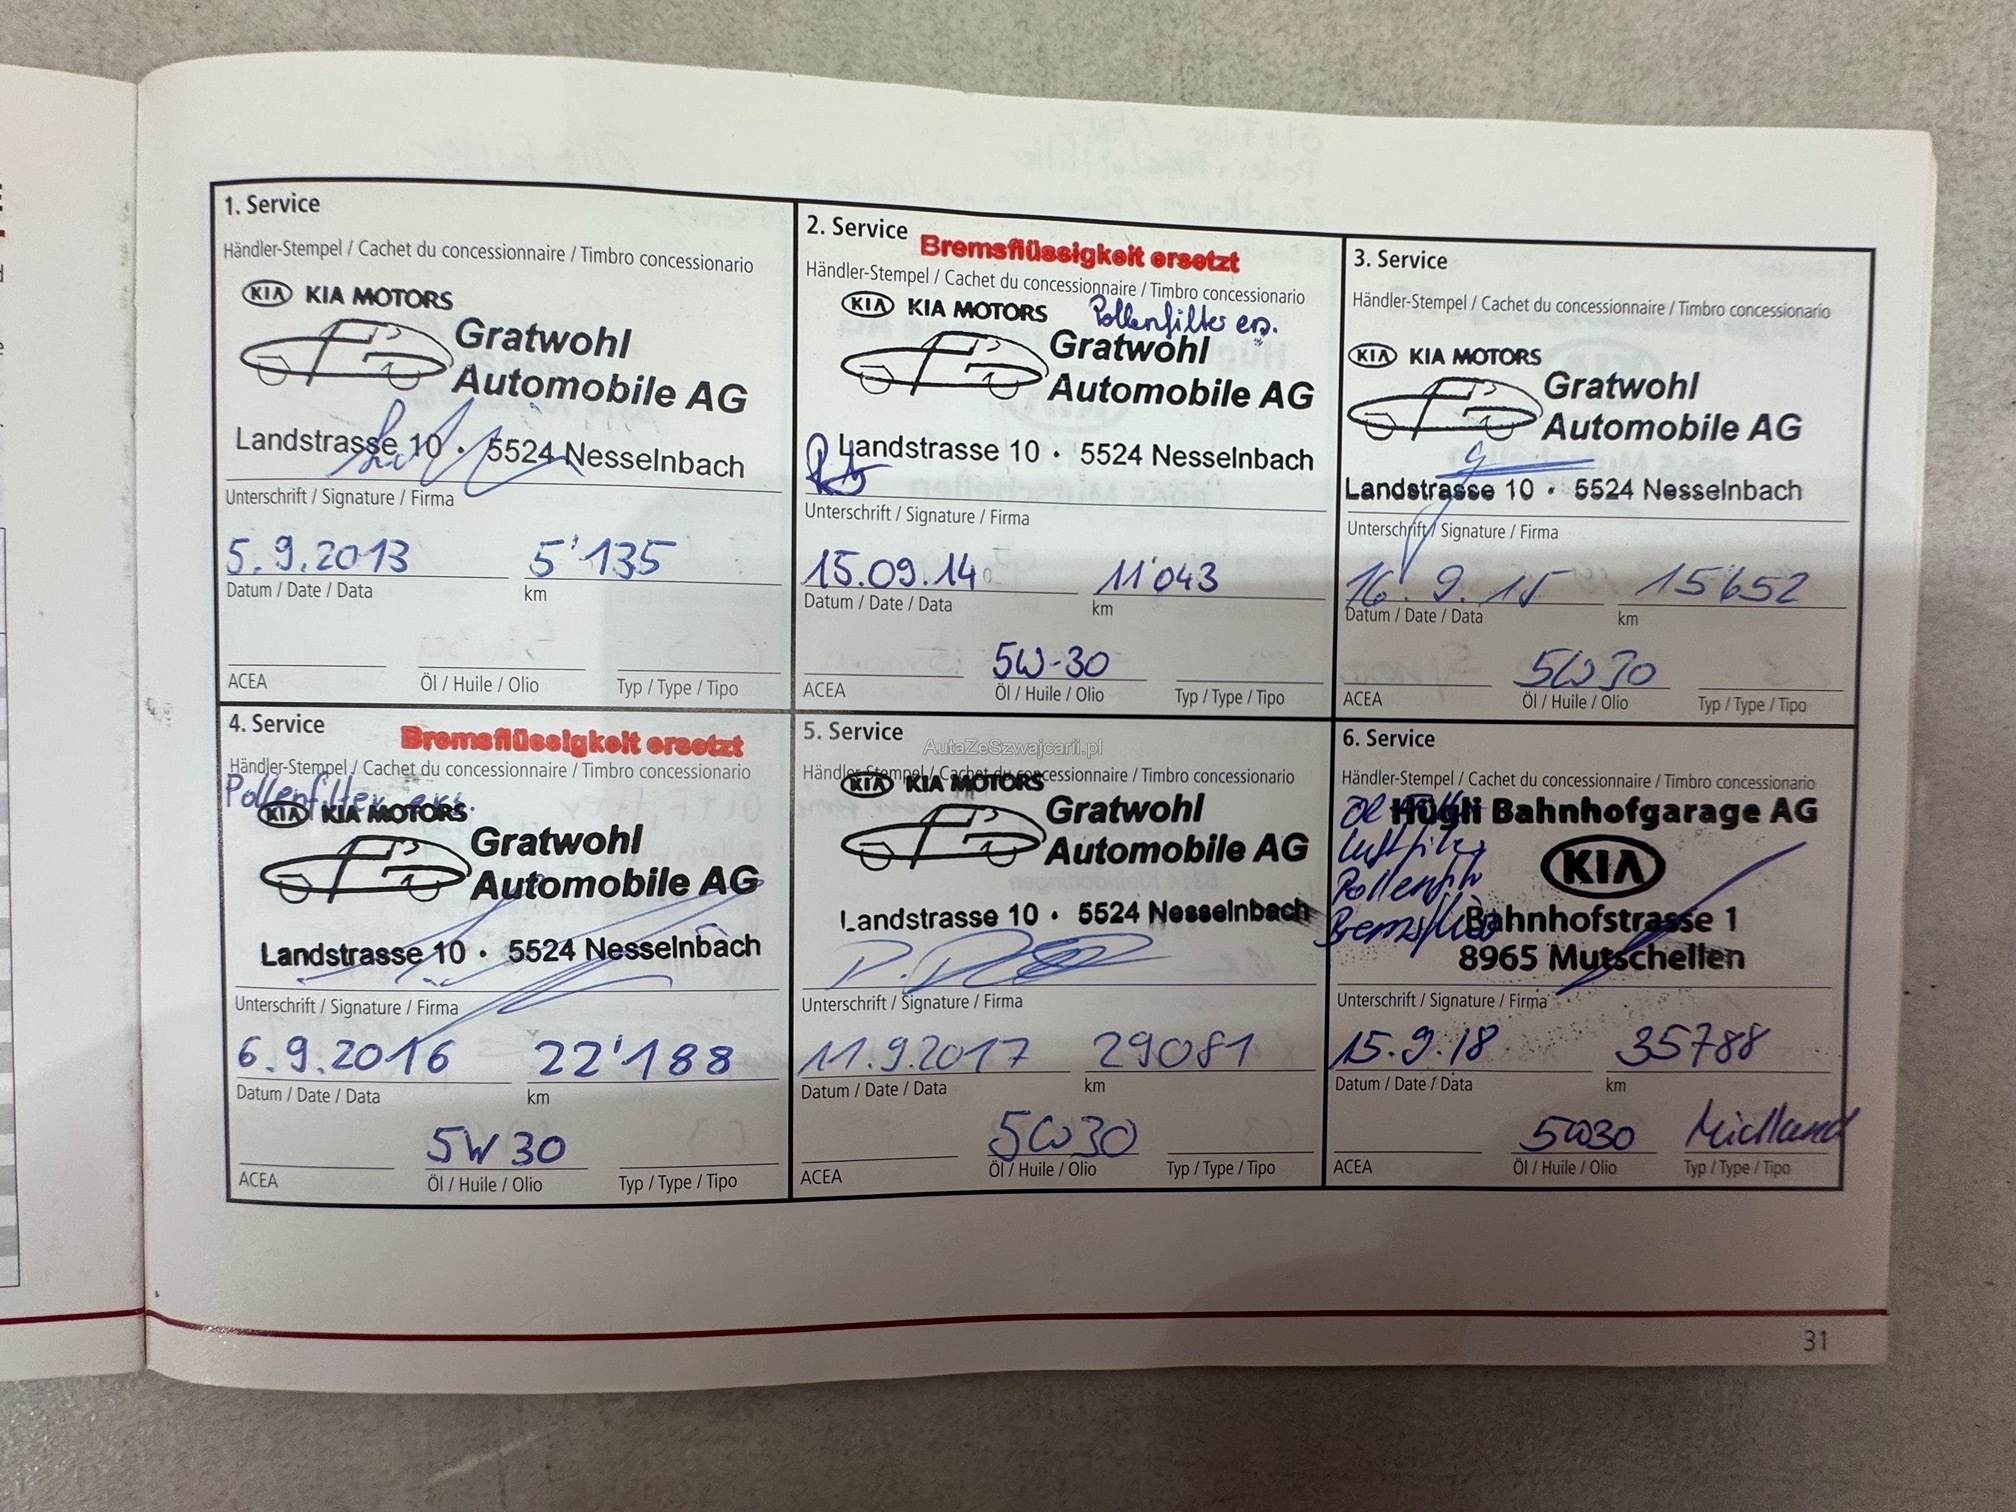 1. Service
Händler-Stempel / Cachet du concessionnaire / Timbro concessionario
KIA KIA MOTORS
Gratwohl
Automobile AG
Landstrasse 10 · 5524 Nesselnbach
Unterschrift / Signature / Firma
5.9.2013 5'135
Datum / Date / Data km
ACEA Öl / Huile / Olio Typ / Type / Tipo
2. Service Bremsflüssigkeit ersetzt
Händler-Stempel / Cachet du concessionnaire / Timbro concessionario
KIA KIA MOTORS Pollenfilter ers.
Gratwohl
Automobile AG
Landstrasse 10 · 5524 Nesselnbach
Unterschrift / Signature / Firma
15.09.14 11'043
Datum / Date / Data km
5W-30
ACEA Öl / Huile / Olio Typ / Type / Tipo
3. Service
Händler-Stempel / Cachet du concessionnaire / Timbro concessionario
KIA KIA MOTORS
Gratwohl
Automobile AG
Landstrasse 10 · 5524 Nesselnbach
Unterschrift / Signature / Firma
16.9.15 15'652
Datum / Date / Data km
5W30
ACEA Öl / Huile / Olio Typ / Type / Tipo
4. Service
Bremsflüssigkeit ersetzt
Händler-Stempel / Cachet du concessionnaire / Timbro concessionario
Pollenfilter ers.
KIA KIA MOTORS
Gratwohl
Automobile AG
Landstrasse 10 · 5524 Nesselnbach
Unterschrift / Signature / Firma
6.9.2016 22'188
Datum / Date / Data km
5W30
ACEA Öl / Huile / Olio Typ / Type / Tipo
5. Service
AutaZeSzwajcarii.pl
Händler-Stempel / Cachet du concessionnaire / Timbro concessionario
KIA KIA MOTORS
Gratwohl
Automobile AG
Landstrasse 10 · 5524 Nesselnbach
Unterschrift / Signature / Firma
11.9.2017 29081
Datum / Date / Data km
5W30
ACEA Öl / Huile / Olio Typ / Type / Tipo
6. Service
Händler-Stempel / Cachet du concessionnaire / Timbro concessionario
Hügli Bahnhofgarage AG
KIA
Bahnhofstrasse 1
8965 Mutschellen
Unterschrift / Signature / Firma
15.9.18 35788
Datum / Date / Data km
5W30 Midland
ACEA Öl / Huile / Olio Typ / Type / Tipo
31